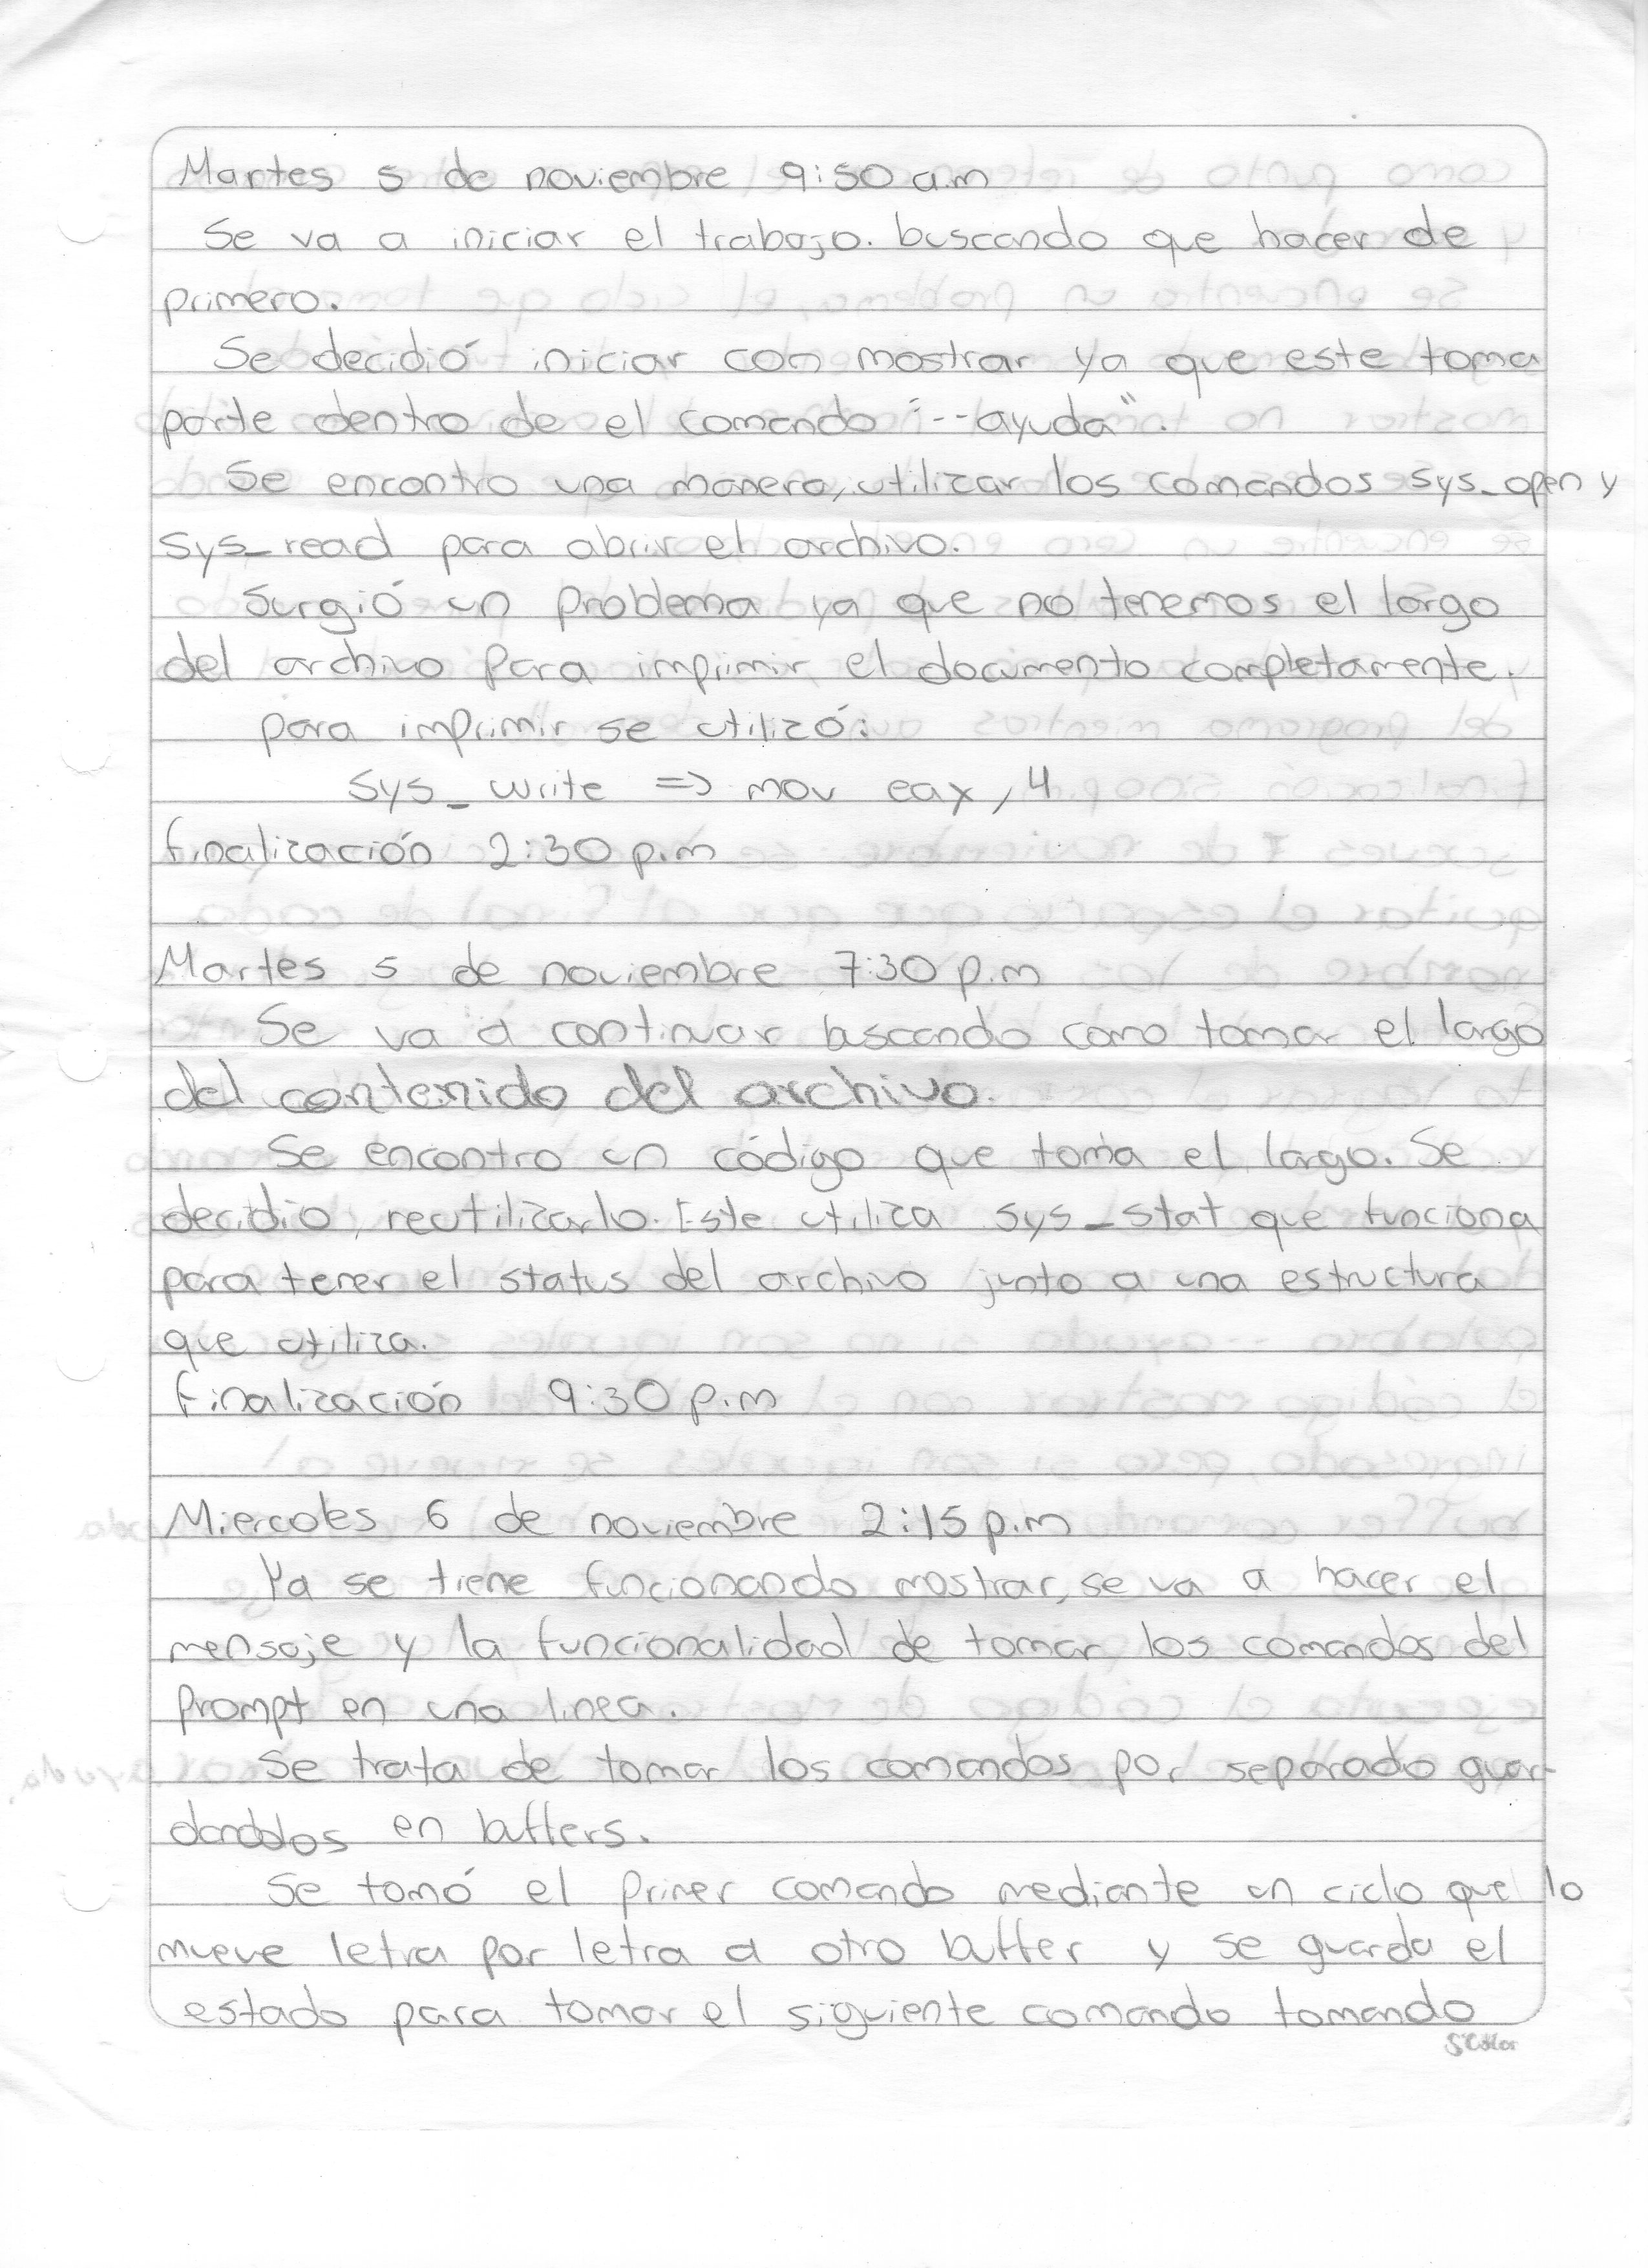 Martes 5 de noviembre 9:50 a.m
Se va a iniciar el trabajo. buscando que hacer de
primero.
Se decidió iniciar con mostrar ya que este toma
parte dentro de el comando "--ayuda".
Se encontro una manera, utilizar los comandos sys_open y
sys_read para abrir el archivo.
Surgió un problema ya que no tenemos el largo
del archivo para imprimir el documento completamente.
para imprimir se utilizó:
sys_write => mov eax, 4
finalización 2:30 p.m
Martes 5 de noviembre 7:30 p.m
Se va a continuar buscando como tomar el largo
del contenido del archivo.
Se encontro un código que toma el largo. Se
decidio reutilizarlo. Este utiliza sys_stat que funciona
para tener el status del archivo junto a una estructura
que utiliza.
finalización 9:30 p.m
Miercoles 6 de noviembre 2:15 p.m
Ya se tiene funcionando mostrar, se va a hacer el
mensaje y la funcionalidad de tomar los comandos del
Prompt en una linea.
Se trata de tomar los comandos por separado guar-
dandolos en buffers.
Se tomó el primer comando mediante un ciclo que lo
mueve letra por letra a otro buffer y se guarda el
estado para tomar el siguiente comando tomando